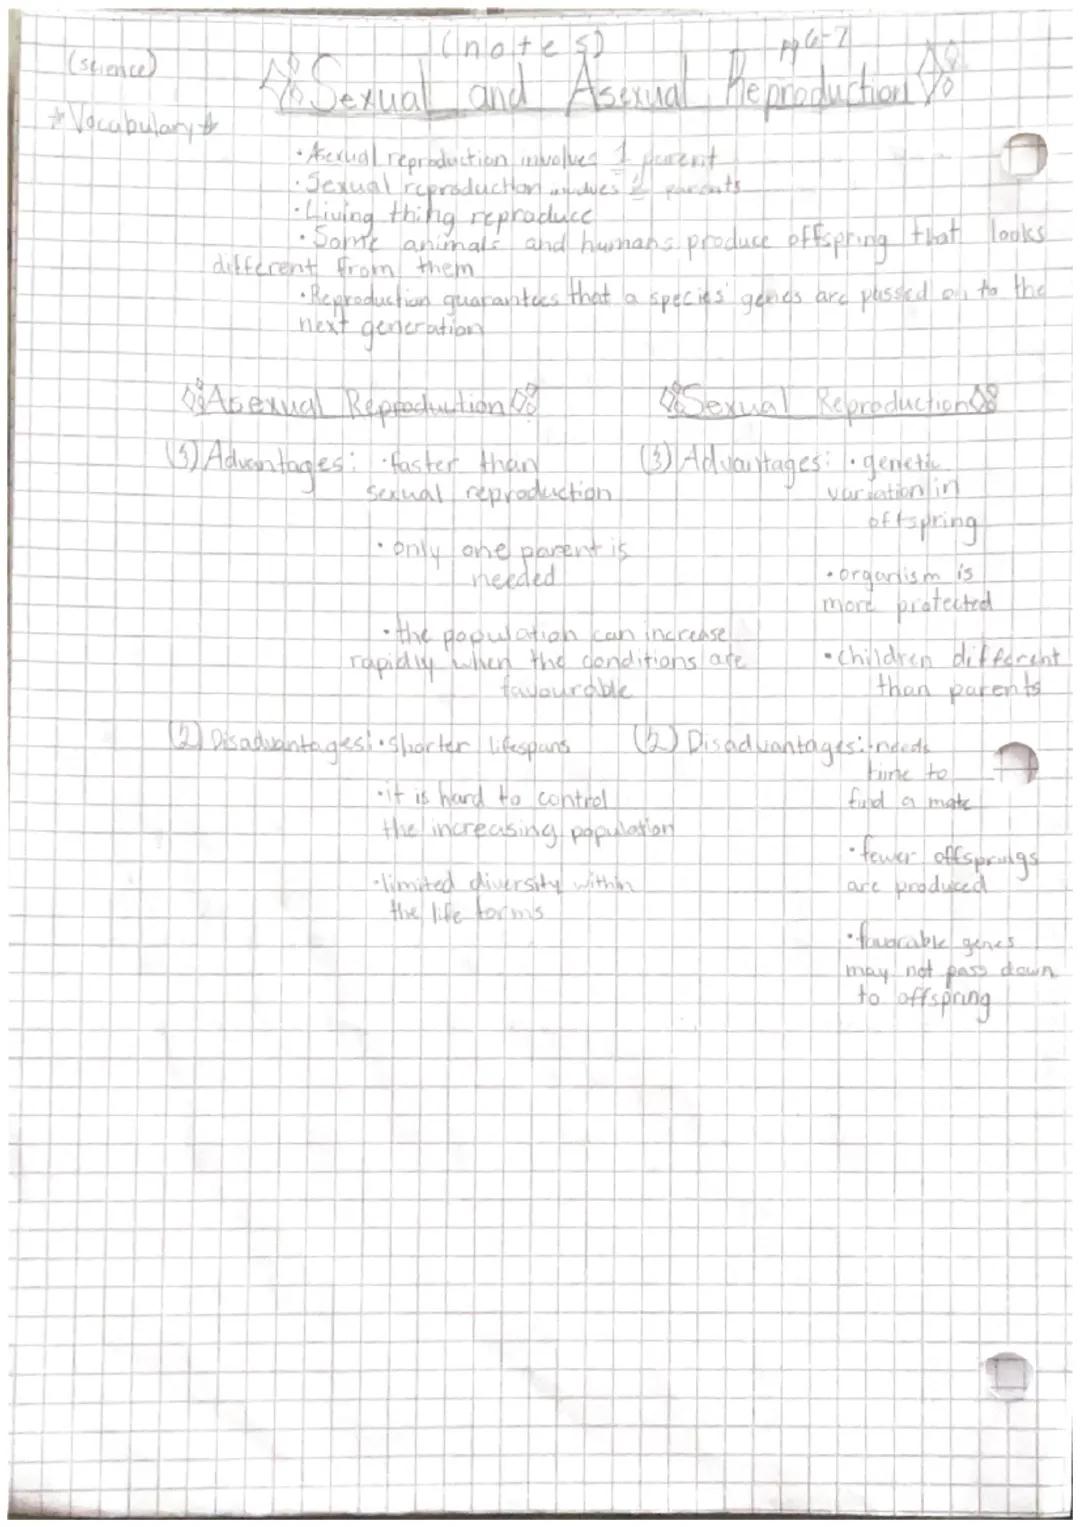 (notes)
pg 6-7
(science)
Sexual and Asexual Reproduction
*Vocabulary*
• Asexual reproduction involves 1 parent
• Sexual reproduction involves 2 parents
• Living thing reproduce
• Some animals and humans produce offspring that looks
different from them
• Reproduction guarantees that a species' genes are passed on to the
next generation
Asexual Reproduction
(3) Advantages: • faster than
sexual reproduction
• only one parent is
needed
• the population can increase
rapidly when the conditions are
favourable
(2) Disadvantages: • shorter lifespans
• it is hard to control
the increasing population
• limited diversity within
the life forms
Sexual Reproduction
(3) Advantages: • genetic
variation in
offspring
• organism is
more protected
• children different
than parents
(2) Disadvantages: • needs
time to
find a mate
• fewer offsprings
are produced
• favorable genes
may not pass down
to offspring